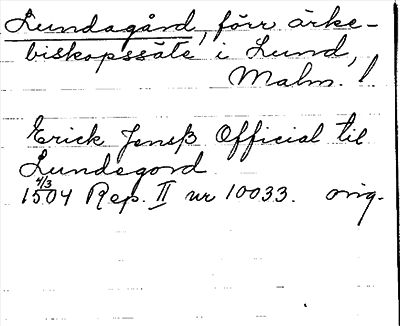 Lundagård, förr ärke-
biskopssäte i Lund,
Malm. l
Erick Jensß Official til
Lundegord
4/3
1504 Rep. II nr 10033. orig.